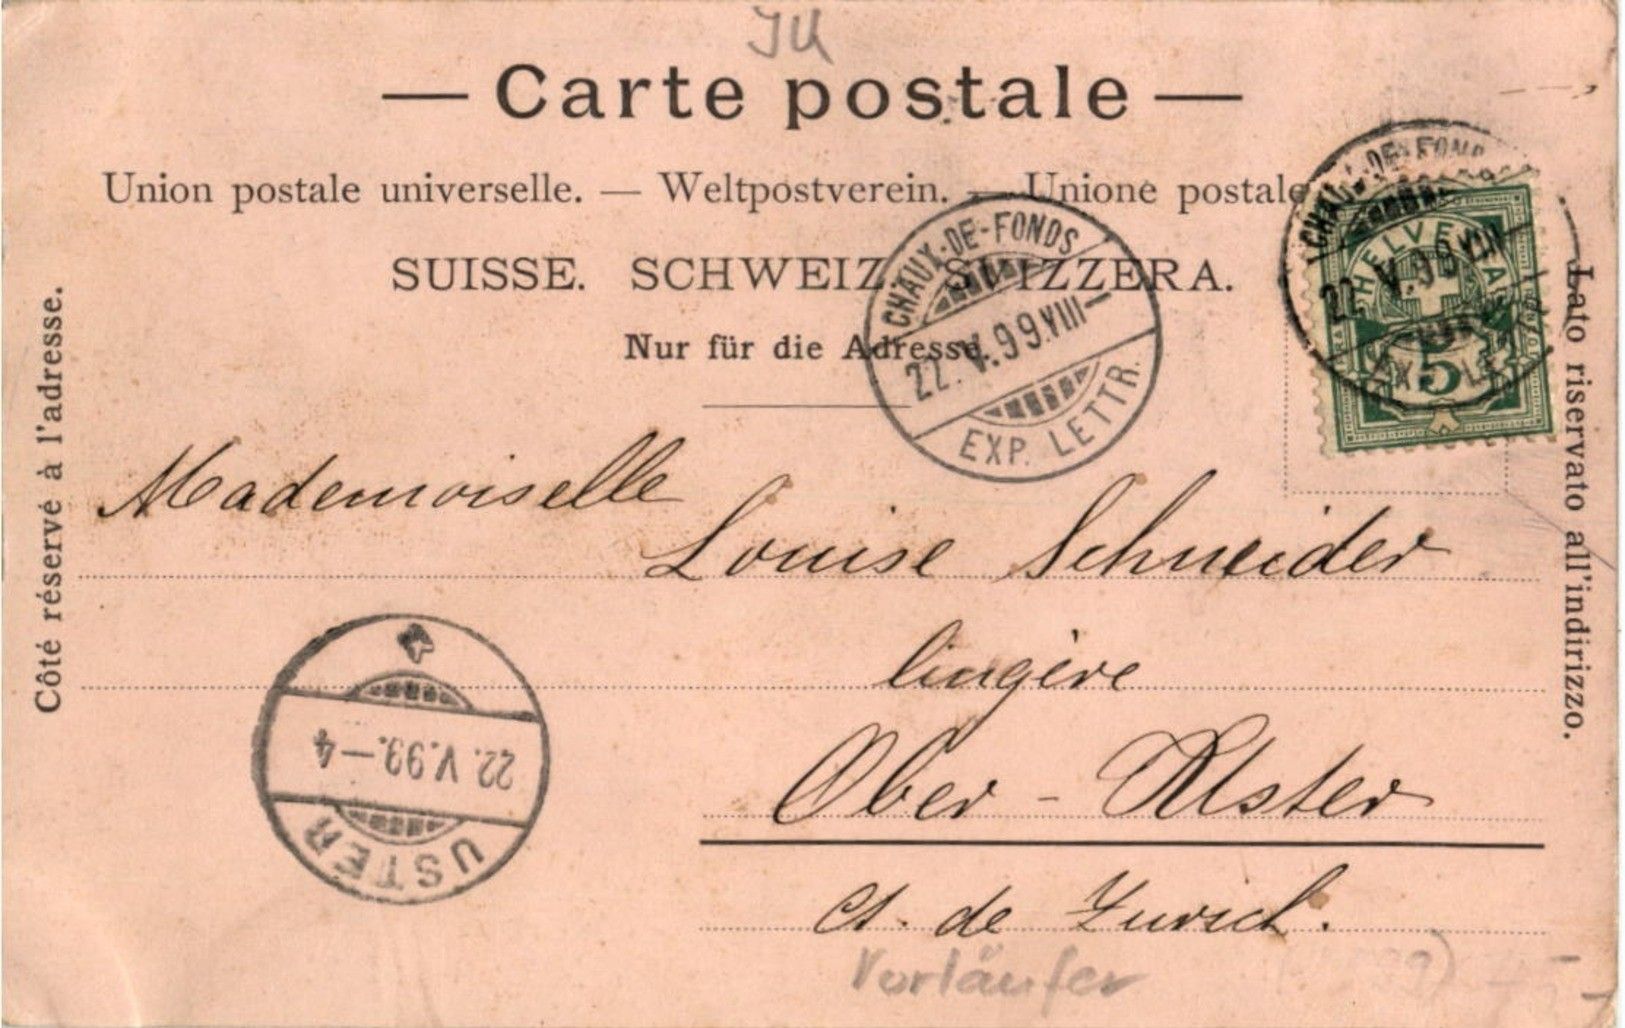 JU
— Carte postale —
Union postale universelle. — Weltpostverein. — Unione postale
SUISSE. SCHWEIZ. SVIZZERA.
Nur für die Adresse.
Côté réservé à l'adresse.
Lato riservato all'indirizzo.
CHAUX-DE-FONDS
22.V.99.VIII—
EXP. LETTR.
CHAUX-DE-FONDS
22.V.99.VIII
EXP. LETTR.
HELVETIA
5
Mademoiselle
Louise Schneider
lingère
Ober-Uster
Ct. de Zurich.
USTER
22.V.99.—4
Vorläufer